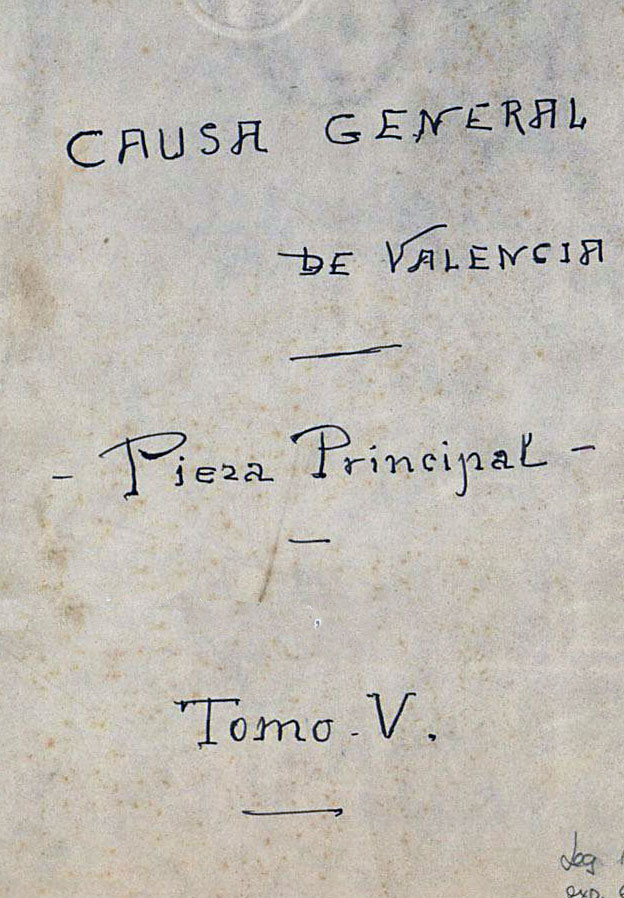 CAUSA GENERAL
DE VALENCIA
- Pieza Principal -
Tomo - V.
Leg
exp.